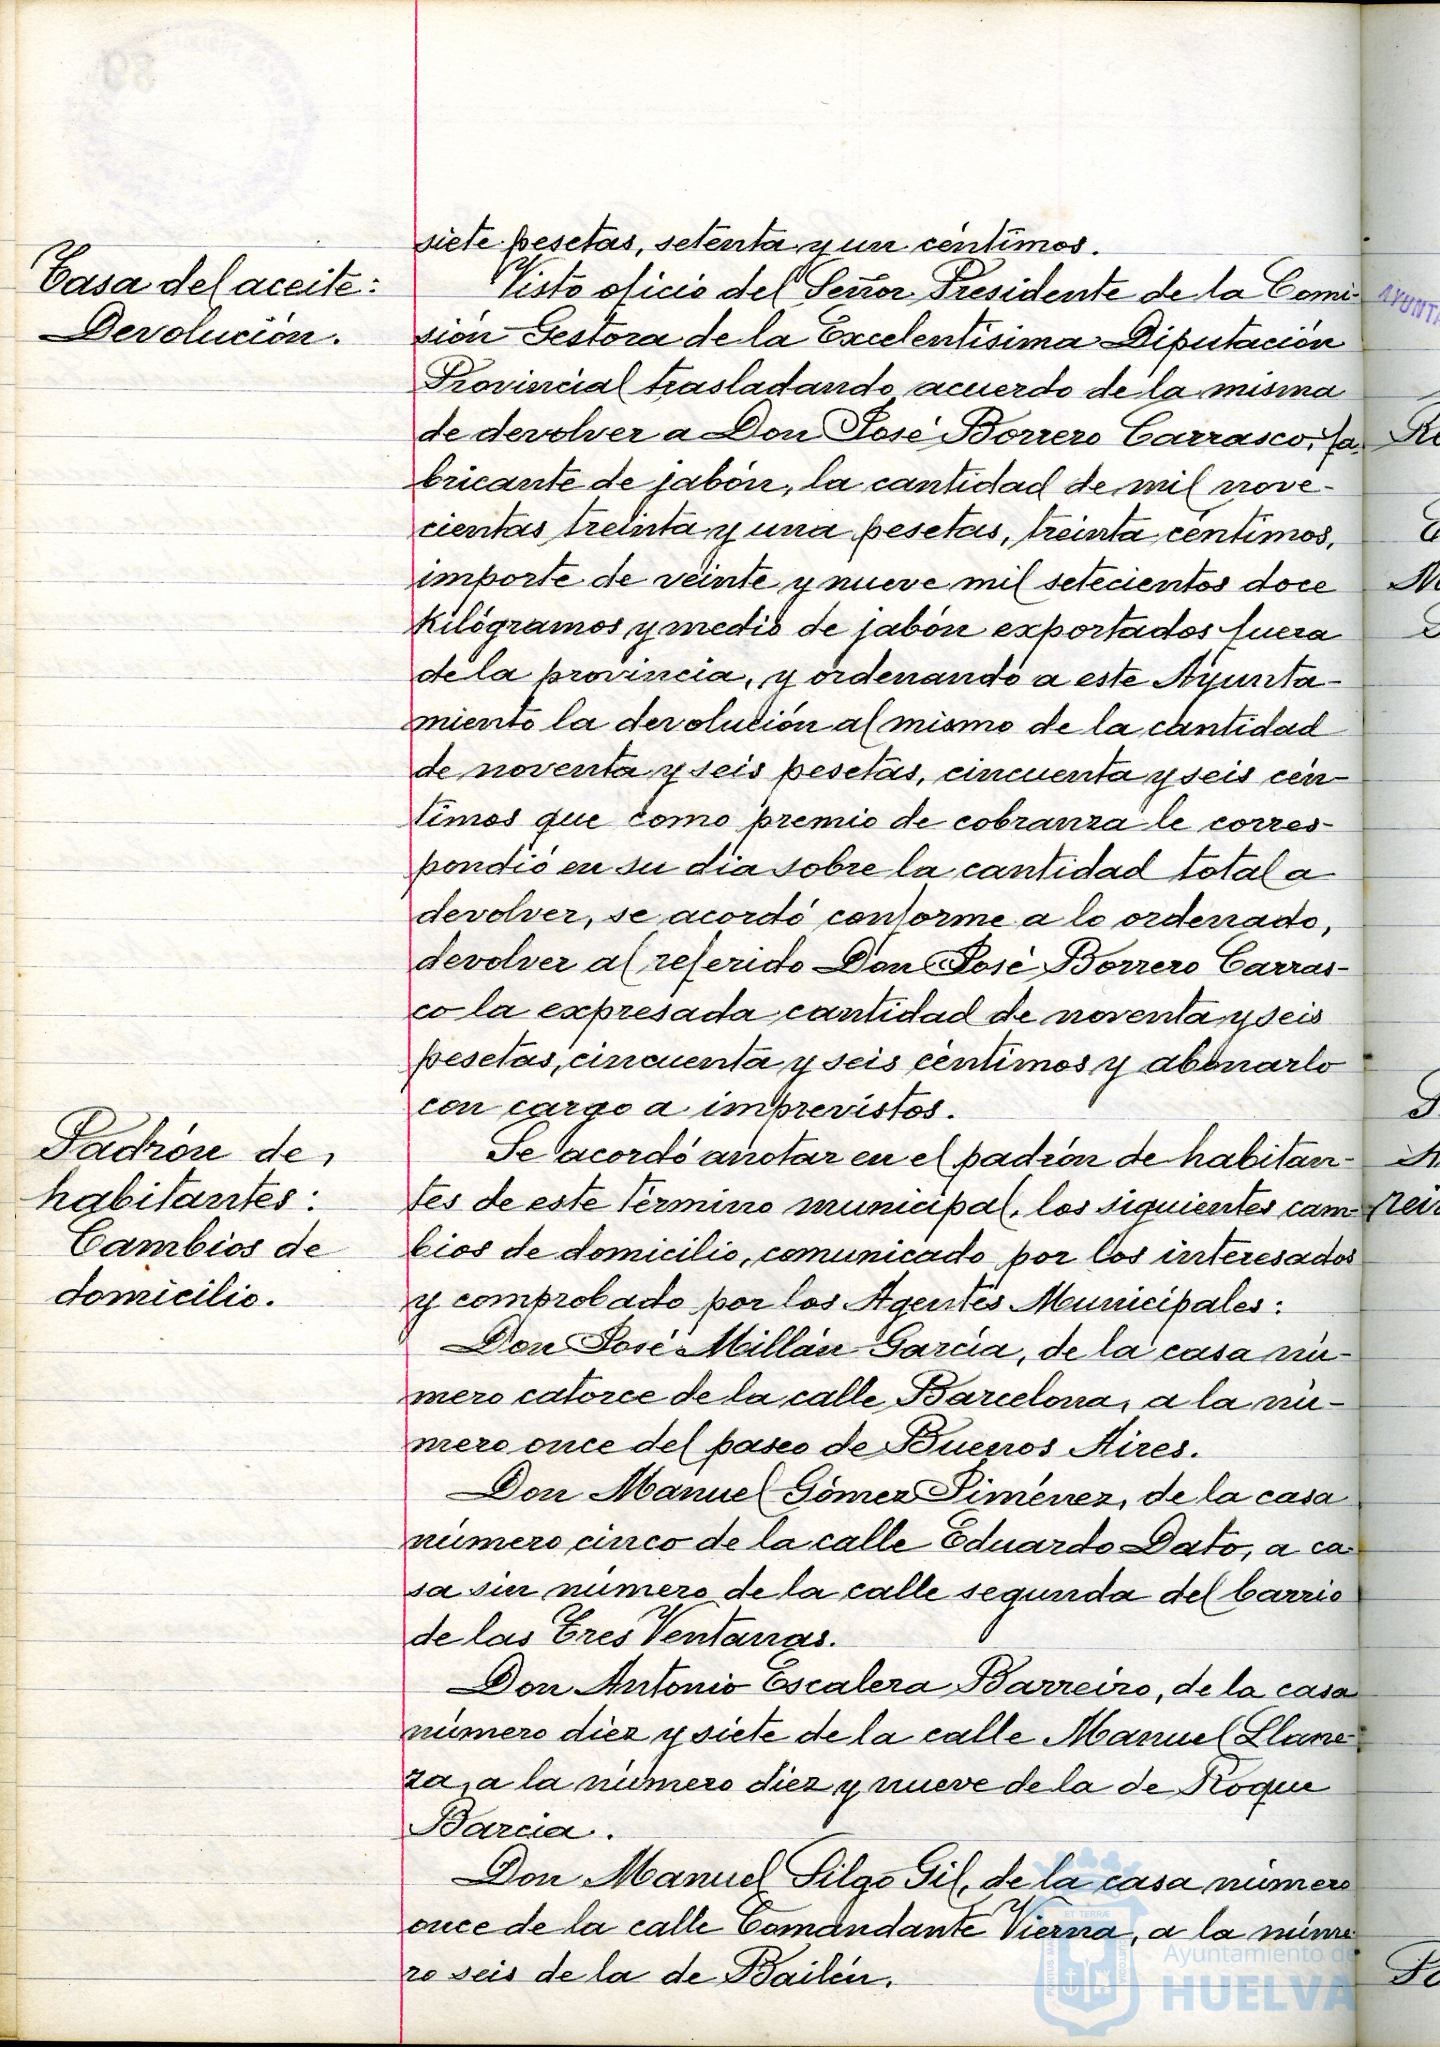 siete pesetas, setenta y un céntimos.
Tasa del aceite:
Devolución.
Visto oficio del Señor Presidente de la Comi-
sión Gestora de la Excelentísima Diputación
Provincial trasladando acuerdo de la misma
de devolver a Don José Borrero Carrasco, fa-
bricante de jabón, la cantidad de mil nove-
cientas treinta y una pesetas, treinta céntimos,
importe de veinte y nueve mil setecientos doce
kilógramos y medio de jabón exportados fuera
de la provincia, y ordenando a este Ayunta-
miento la devolución al mismo de la cantidad
de noventa y seis pesetas, cincuenta y seis cén-
timos que como premio de cobranza le corres-
pondió en su día sobre la cantidad total a
devolver, se acordó conforme a lo ordenado,
devolver al referido Don José Borrero Carras-
co la expresada cantidad de noventa y seis
pesetas, cincuenta y seis céntimos y abonarlo
con cargo a imprevistos.
Padrón de
habitantes:
Cambios de
domicilio.
Se acordó anotar en el padrón de habitan-
tes de este término municipal, los siguientes cam-
bios de domicilio, comunicado por los interesados
y comprobado por los Agentes Municipales:
Don José Millán García, de la casa nú-
mero catorce de la calle Barcelona, a la nú-
mero once del paseo de Buenos Aires.
Don Manuel Gómez Jiménez, de la casa
número cinco de la calle Eduardo Dato, a ca-
sa sin número de la calle segunda del barrio
de las Tres Ventanas.
Don Antonio Escalera Barreiro, de la casa
número diez y siete de la calle Manuel Llane-
za, a la número diez y nueve de la de Roque
Barcia.
Don Manuel Silgo Gil, de la casa número
once de la calle Comandante Vierna, a la núme-
ro seis de la de Bailén.
Ayuntamiento de
HUELVA